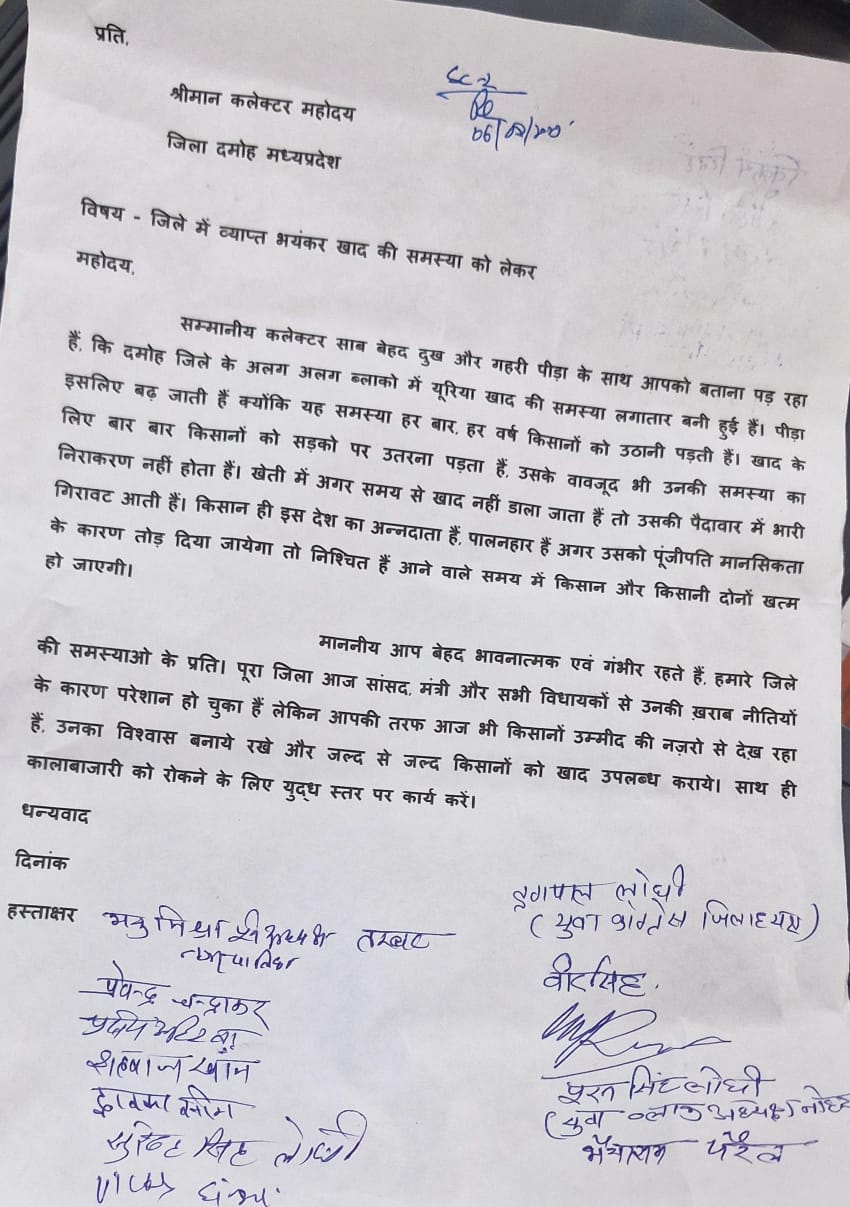 प्रति,
श्रीमान कलेक्टर महोदय
जिला दमोह मध्यप्रदेश
विषय - जिले में व्याप्त भयंकर खाद की समस्या को लेकर
महोदय,
सम्मानीय कलेक्टर साब बेहद दुख और गहरी पीड़ा के साथ आपको बताना पड़ रहा
हैं, कि दमोह जिले के अलग अलग ब्लाको में यूरिया खाद की समस्या लगातार बनी हुई हैं। पीड़ा
इसलिए बढ़ जाती हैं क्योंकि यह समस्या हर बार, हर वर्ष किसानों को उठानी पड़ती हैं। खाद के
लिए बार बार किसानों को सड़को पर उतरना पड़ता हैं, उसके वावजूद भी उनकी समस्या का
निराकरण नहीं होता हैं। खेती में अगर समय से खाद नहीं डाला जाता हैं तो उसकी पैदावार में भारी
गिरावट आती हैं। किसान ही इस देश का अन्नदाता हैं, पालनहार हैं अगर उसको पूंजीपति मानसिकता
के कारण तोड़ दिया जायेगा तो निश्चित हैं आने वाले समय में किसान और किसानी दोनों खत्म
हो जाएगी।
माननीय आप बेहद भावनात्मक एवं गंभीर रहते हैं, हमारे जिले
की समस्याओ के प्रति। पूरा जिला आज सांसद, मंत्री और सभी विधायकों से उनकी ख़राब नीतियों
के कारण परेशान हो चुका हैं लेकिन आपकी तरफ आज भी किसानों उम्मीद की नज़रो से देख़ रहा
हैं, उनका विश्वास बनाये रखे और जल्द से जल्द किसानों को खाद उपलब्ध कराये। साथ ही
कालाबाजारी को रोकने के लिए युद्ध स्तर पर कार्य करें।
धन्यवाद
दिनांक
हस्ताक्षर
लोधी
(युवा कांग्रेस जिलाध्यक्ष)
वीरसिंह.
चन्द्राकर
खान
सिंह लोधी
सिंह लोधी
(युवा ब्लाक अध्यक्ष